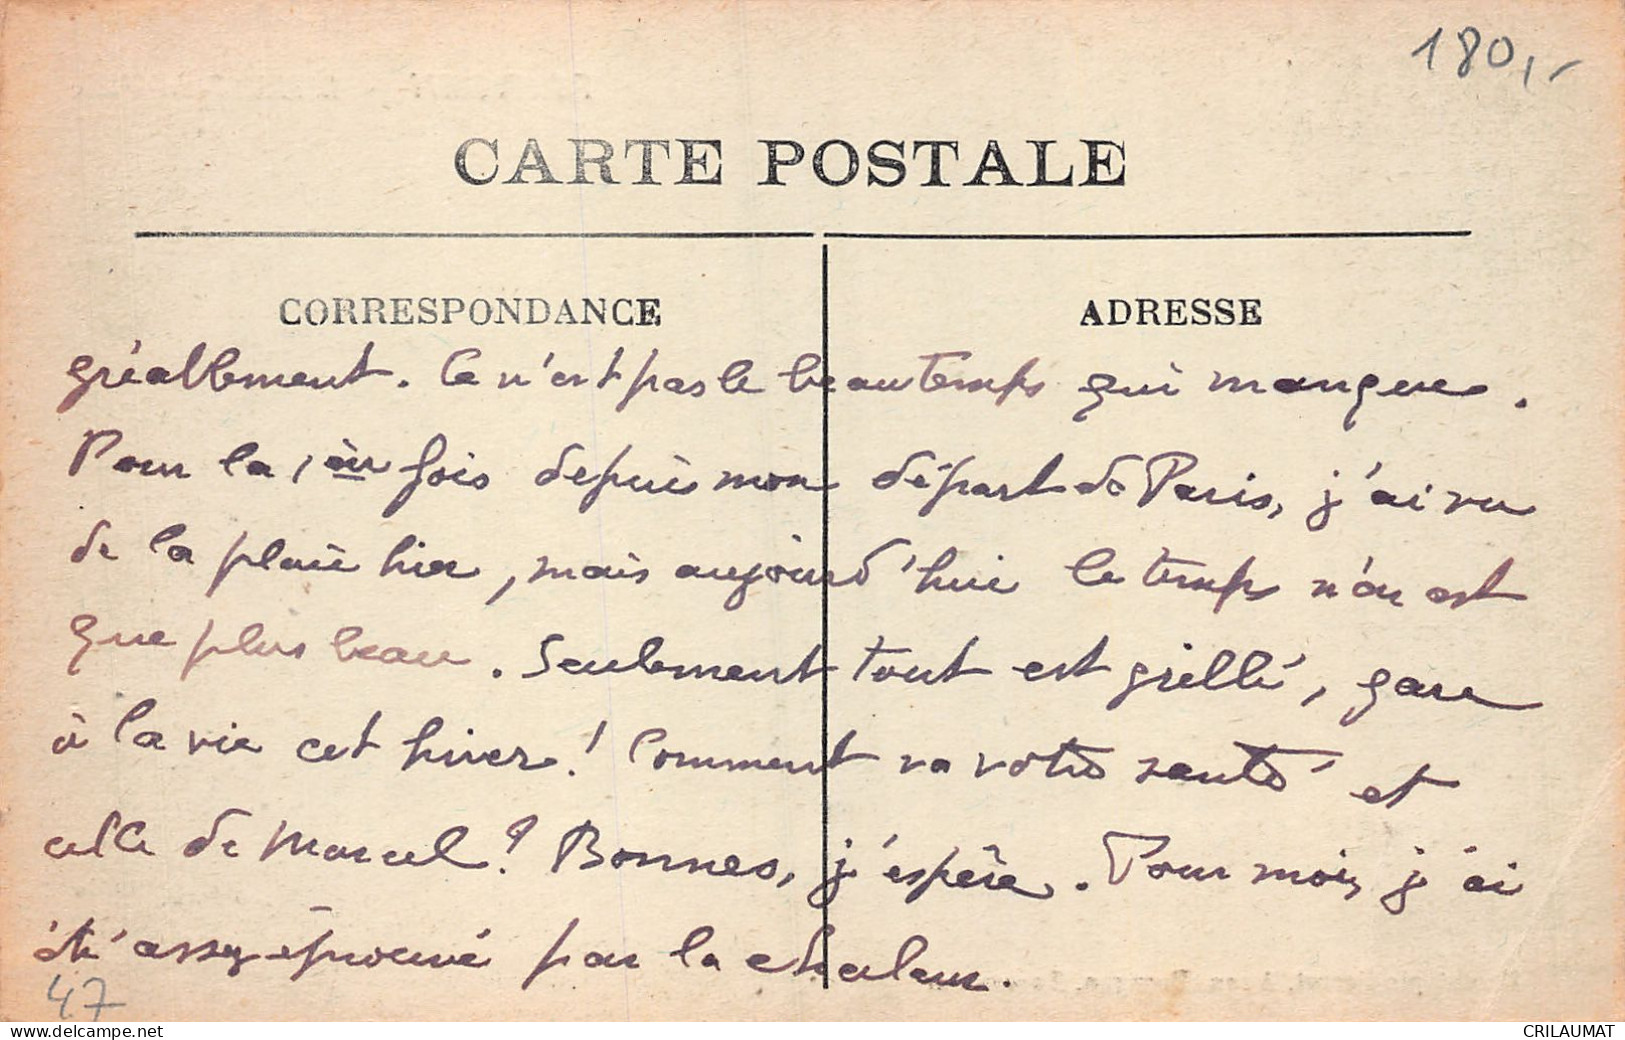 180,-
CARTE POSTALE
CORRESPONDANCE
ADRESSE
gréablement. Ce n'est pas le beau temps qui manque.
Pour la 1ère fois depuis mon départ de Paris, j'ai vu
de la pluie hier, mais aujourd'hui le temps n'en est
que plus beau. Seulement tout est grillé, gare
à la vie cet hiver! Comment va votre santé et
celle de Marcel? Bonnes, j'espère. Pour moi, j'ai
été assez éprouvé par la chaleur.
47
www.delcampe.net
CRILAUMAT